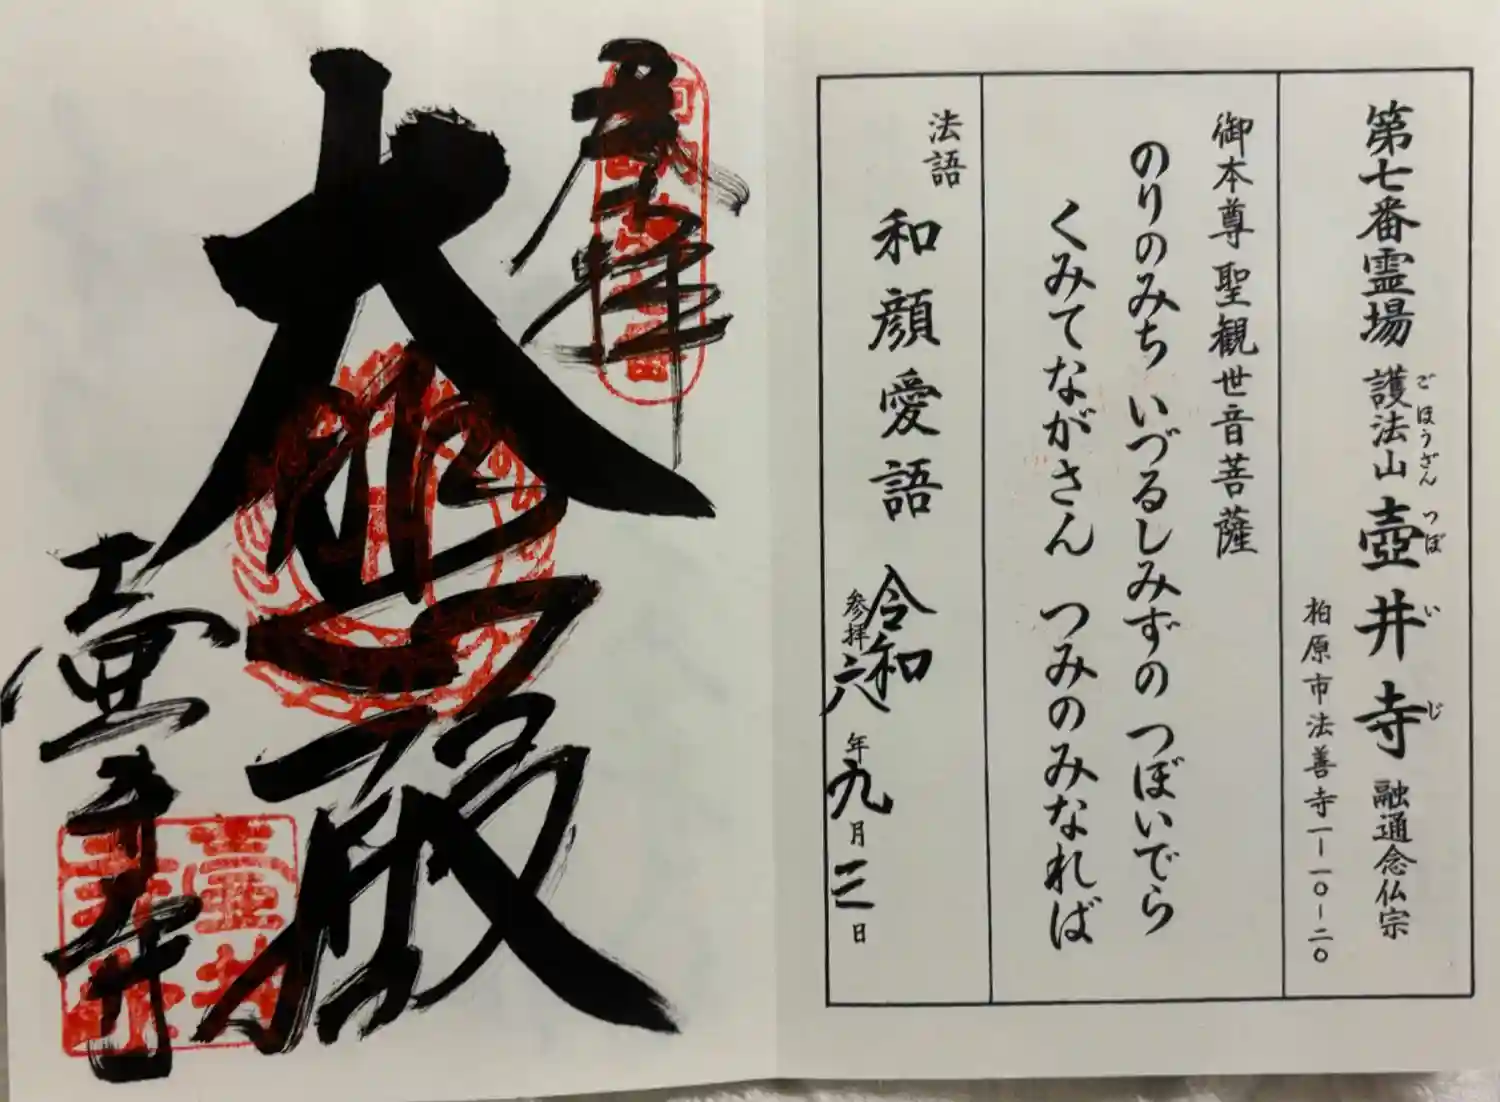 第七番霊場 護法山 壺井寺 融通念仏宗
ごほうざん つぼいじ
柏原市法善寺一－一〇－二〇
御本尊 聖観世音菩薩
のりのみち いづるしみずの つぼいでら
くみてながさん つみのみなれば
法語 和顔愛語
参拝 令和六年九月三日
奉拝
大悲殿
壺井寺